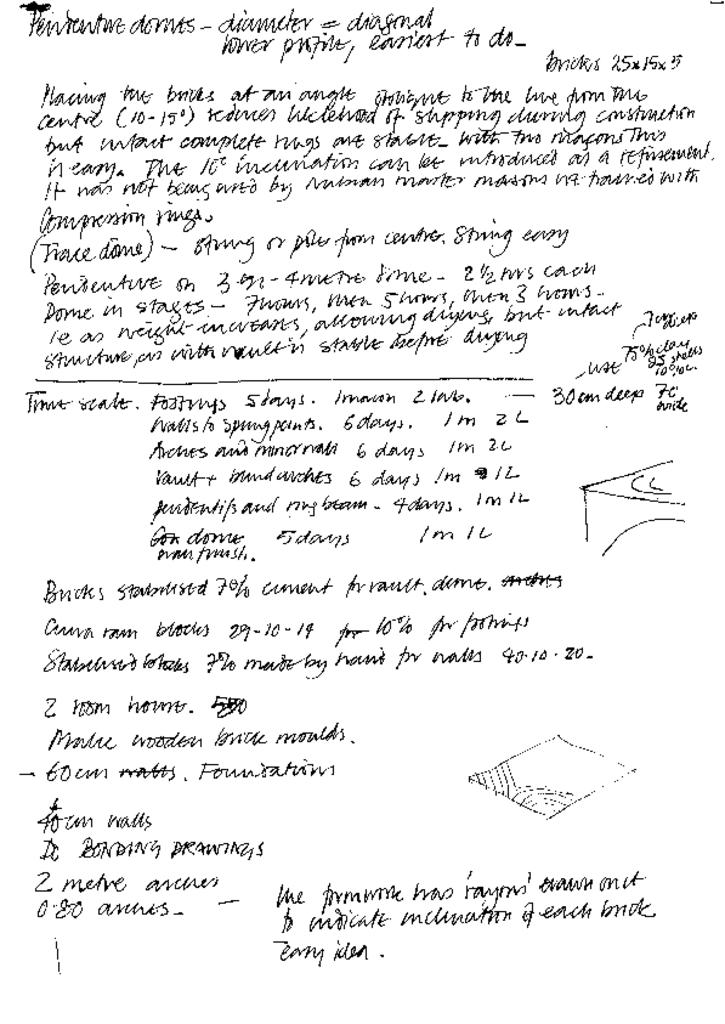 Pendentive domes - diameter = diagonal
lower profile, easiest to do -
bricks 25x15x5
Placing the bricks at an angle to the line from the
centre (10-15°) reduces likelihood of slipping during construction
but intact complete rings are stable - with two masons this
is easy. The 10° inclination can be introduced as a refinement.
It was not being used by Nubian master masons we trained with
Compression rings.
(Trace dome) - string or pole from centre. String easy
Pendentive on 3 - 4 metre dome - 2 1/2 hrs each
Dome in stages - 7 hours, then 5 hours, then 3 hours -
ie as weight increases, allowing drying, but intact
structure, as with vault is stable before drying
use
75% clay
Time scale. Footings 5 days. 1 mason 2 lab. — 30cm deep 70 wide
Walls to spring points. 6 days. 1m 2L
Arches and minor walls 6 days 1m 2L
Vault + blind arches 6 days 1m 1L
pendentifs and ring beam - 4 days. 1m 1L
dome 5 days 1m 1L
finish.
Bricks stabilised 7% cement for vault, dome. arches
Cinva ram blocks 29-10-14 for 10% for footings
Stabilised blocks 7% made by hand for walls 40-10-20-
2 room house.
Make wooden brick moulds.
→ 60cm walls. Foundations
40cm walls
Do BONDING DRAWINGS
2 metre arches
0.80 arches - —
the formwork has 'rayons' drawn on it
to indicate inclination of each brick
easy idea.